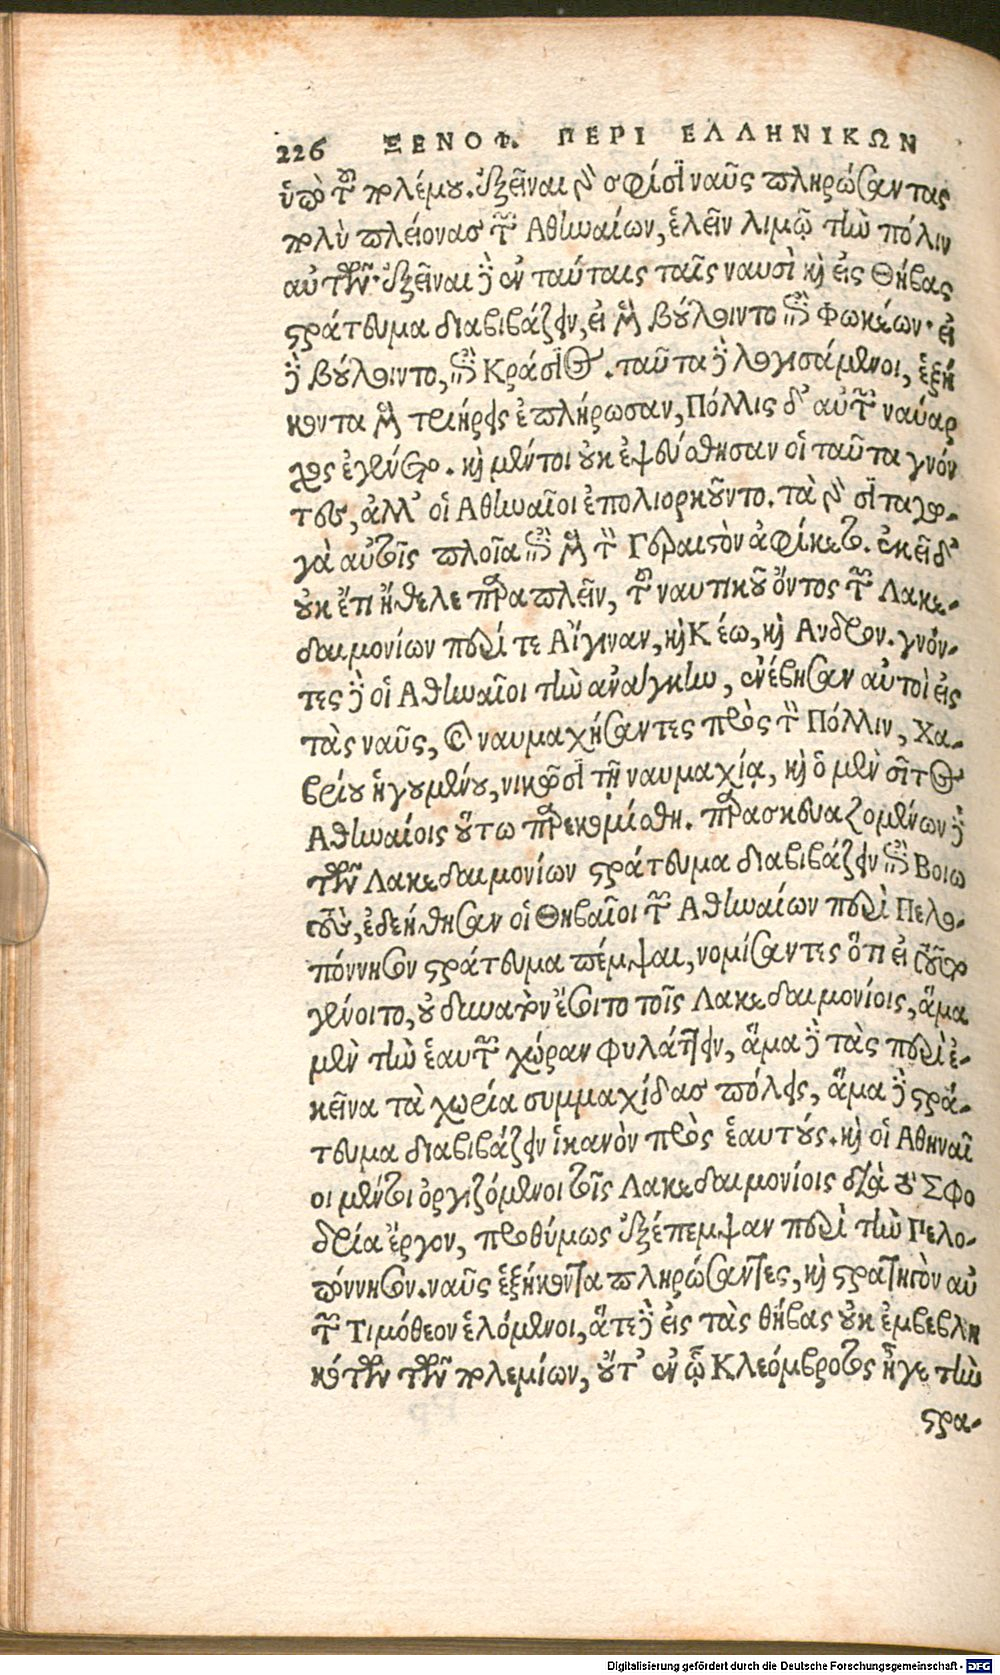 226 ΞΕΝΟΦ. ΠΕΡΙ ΕΛΛΗΝΙΚΩΝ
ὑπὸ τοῦ πολέμου. ἐξεῖναι γὰρ σφίσι ναῦς πληρώσαντας
πολὺ πλείονας τῶν Ἀθηναίων, ἑλεῖν λιμῷ τὴν πόλιν
αὐτῶν. ἐξεῖναι δὲ ἐν ταύταις ταῖς ναυσὶ καὶ εἰς Θήβας
στράτευμα διαβιβάζειν, εἰ μὲν βούλοιντο ἐπὶ Φωκέων· εἰ
δὲ βούλοιντο, ἐπὶ Κράσιος. ταῦτα δὲ λογισάμενοι, ἑξή
κοντα μὲν τριήρεις ἐπλήρωσαν, Πόλλις δ' αὐτῶν ναύαρ
χος ἐγένετο. καὶ μέντοι οὐκ ἐψεύσθησαν οἱ ταῦτα γνόν
τες, ἀλλ' οἱ Ἀθηναῖοι ἐπολιορκοῦντο. τὰ γὰρ σιταγω-
γὰ αὐτοῖς πλοῖα ἐπὶ μὲν τὸν Γεραιστὸν ἀφίκετο. ἐκεῖ δ'
οὐκ ἔτι ἤθελε παραπλεῖν, τοῦ ναυτικοῦ ὄντος τῶν Λακε-
δαιμονίων περί τε Αἴγιναν, καὶ Κέω, καὶ Ἄνδρον. γνόν-
τες δὲ οἱ Ἀθηναῖοι τὴν ἀνάγκην, ἐνέβησαν αὐτοὶ εἰς
τὰς ναῦς, καὶ ναυμαχήσαντες πρὸς τὸν Πόλλιν, Χα-
βρίου ἡγουμένου, νικῶσι τῇ ναυμαχίᾳ, καὶ ὁ μὲν σῖτος
Ἀθηναίοις οὕτω παρεκομίσθη. παρασκευαζομένων δὲ
τῶν Λακεδαιμονίων στράτευμα διαβιβάζειν ἐπὶ Βοιω
τοὺς, ἐδεήθησαν οἱ Θηβαῖοι τῶν Ἀθηναίων περὶ Πελο-
πόννησον στράτευμα πέμψαι, νομίσαντες ὅτι εἰ τοῦτο
γένοιτο, οὐ δυνατὸν ἔσοιτο τοῖς Λακεδαιμονίοις, ἅμα
μὲν τὴν ἑαυτῶν χώραν φυλάττειν, ἅμα δὲ τὰς περὶ ἐ-
κεῖνα τὰ χωρία συμμαχίδας πόλεις, ἅμα δὲ στρά-
τευμα διαβιβάζειν ἱκανὸν πρὸς ἑαυτούς. καὶ οἱ Ἀθηναῖ
οι μέντοι ὀργιζόμενοι τοῖς Λακεδαιμονίοις διὰ τὸ Σφο
δρία ἔργον, προθύμως ἐξέπεμψαν περὶ τὴν Πελο-
πόννησον. ναῦς ἑξήκοντα πληρώσαντες, καὶ στρατηγὸν αὐ
τῶν Τιμόθεον ἑλόμενοι, ἅτε δὲ εἰς τὰς θήβας οὐκ ἐμβεβλη
κότων τῶν πολεμίων, οὔτ' ἐν ᾧ Κλεόμβροτος ἦγε τὴν
στρα-
Digitalisierung gefördert durch die Deutsche Forschungsgemeinschaft - DFG